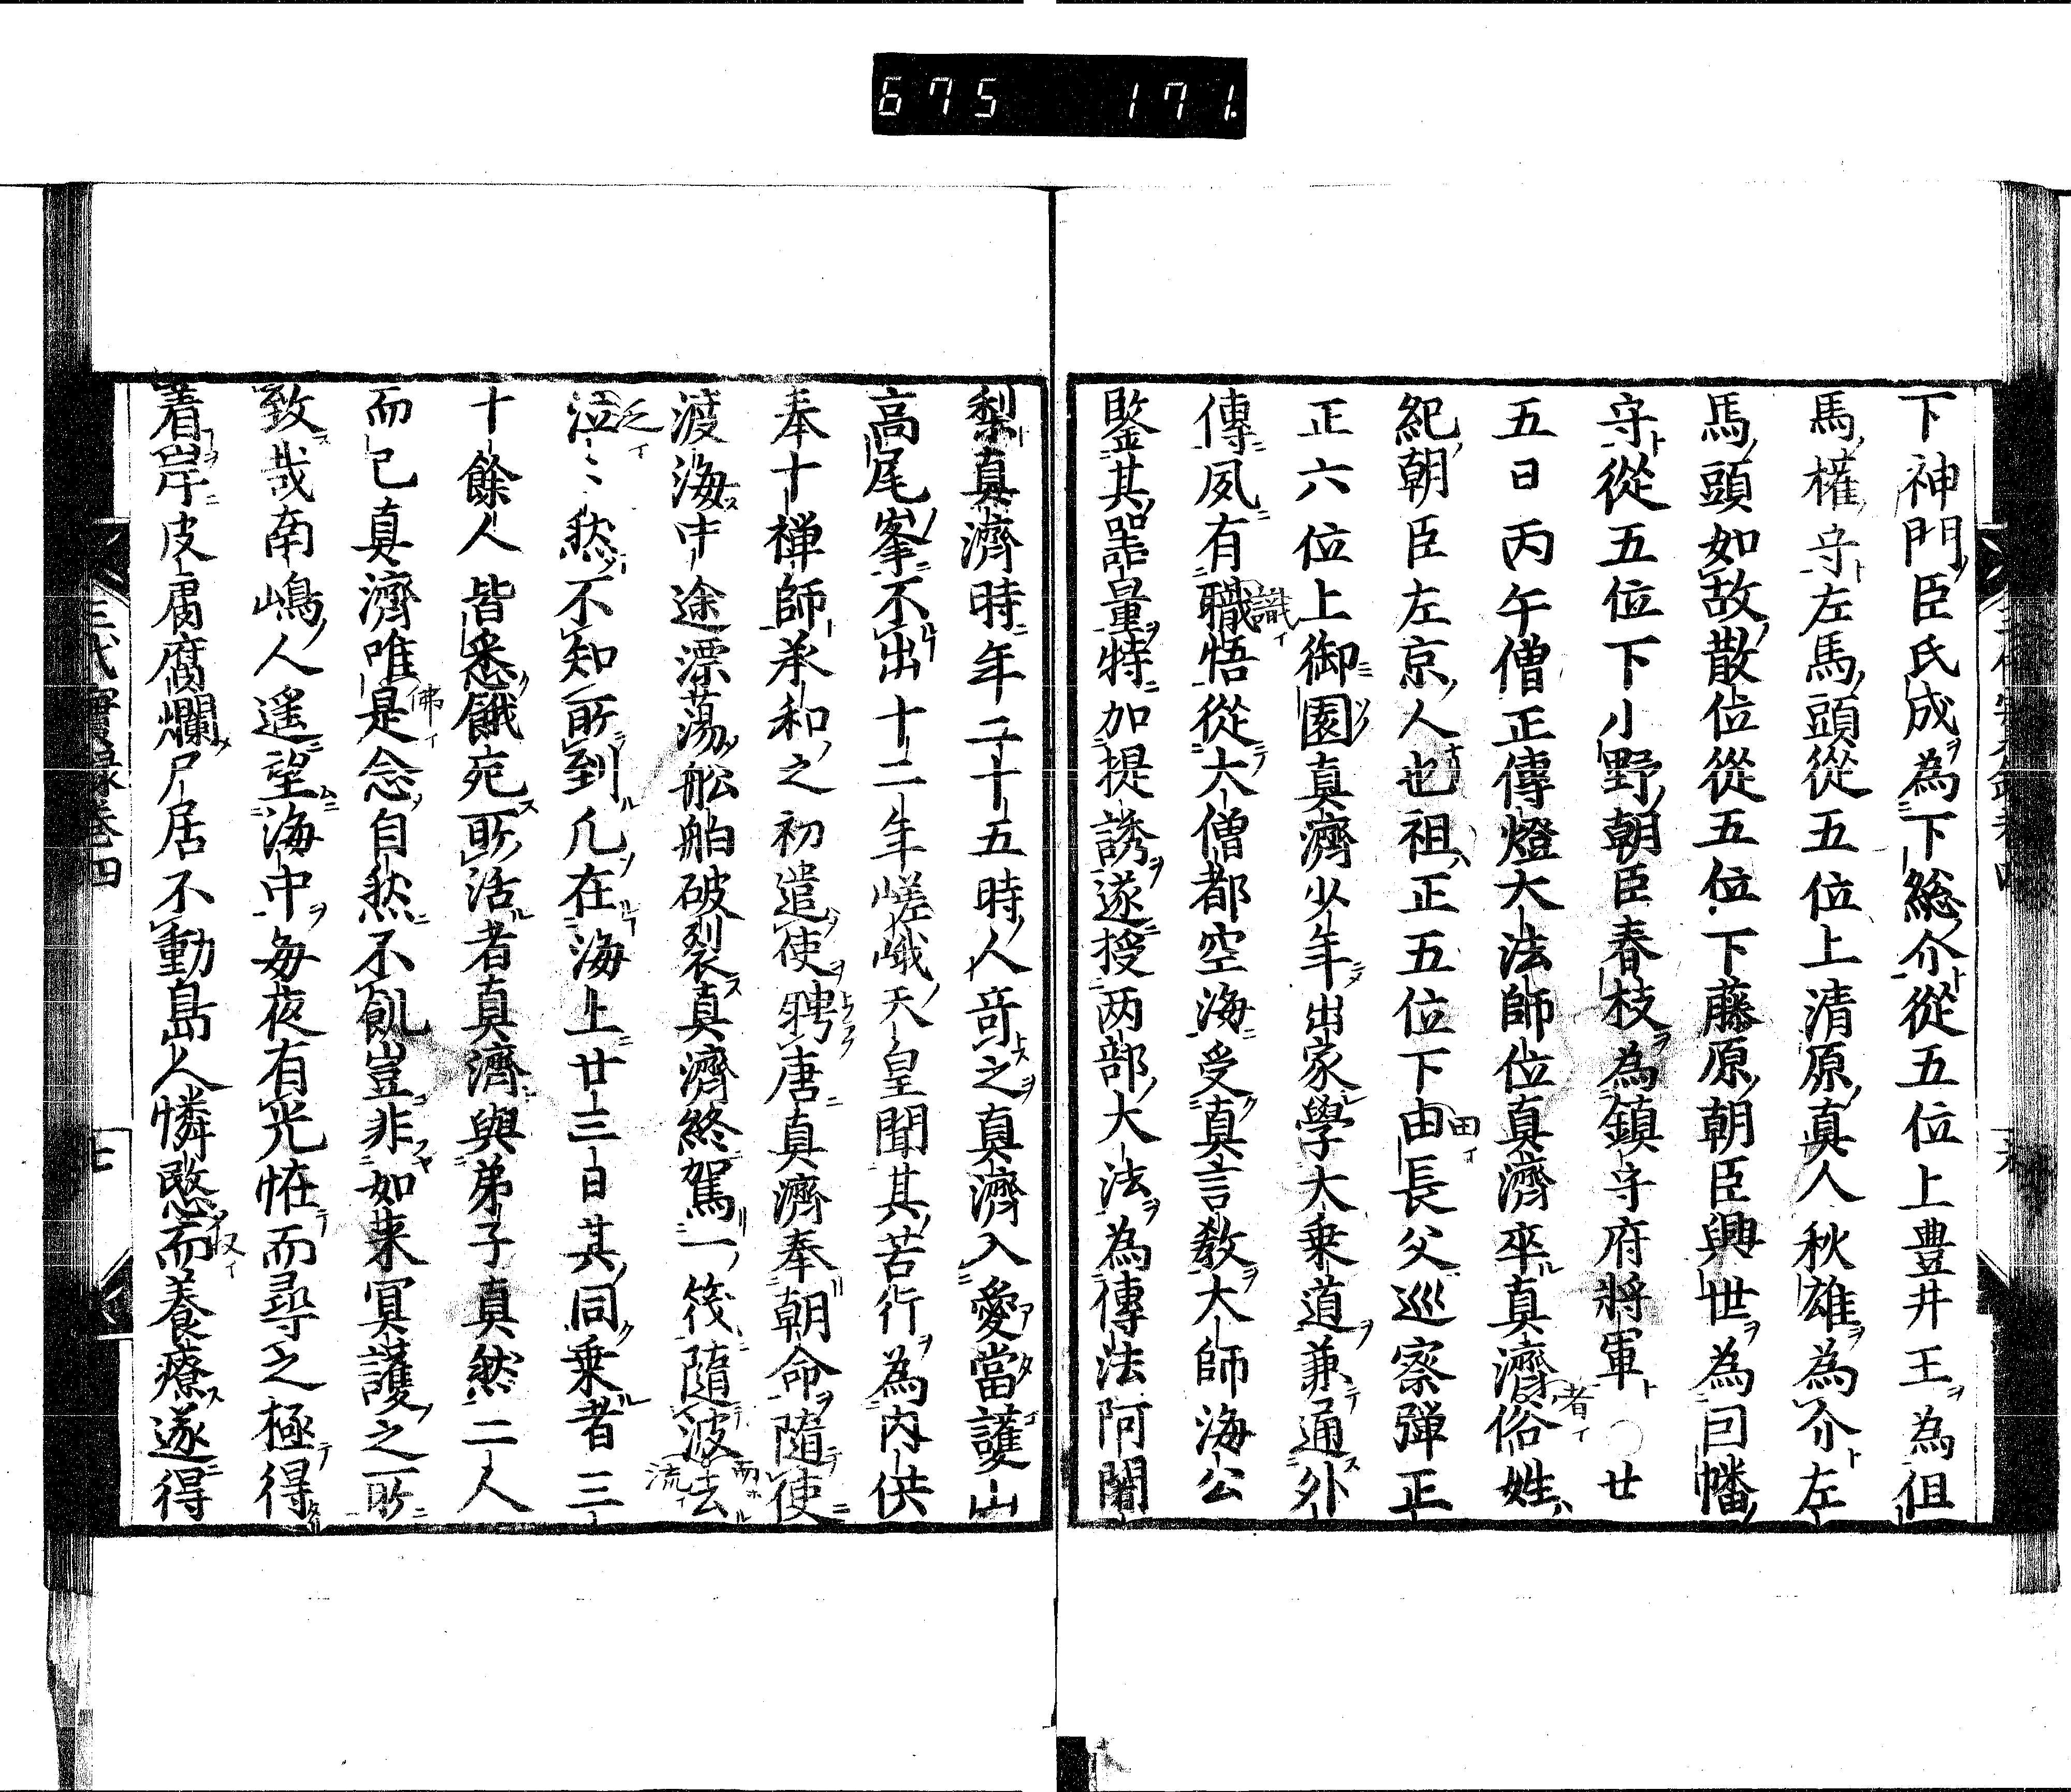 675 171.
下神門臣氏成為下総介從五位上豊井王為但
馬權守左馬頭從五位上清原真人秋雄為介左
馬頭如故散位從五位下藤原朝臣興世為因幡
守從五位下小野朝臣春枝為鎮守府將軍○廿
五日丙午僧正傳燈大法師位真濟卒真濟俗姓
紀朝臣左京人也祖正五位下由長父巡察彈正
正六位上御園真濟少年出家學大乗道兼通外
傳夙有職悟從大僧都空海受真言教大師海公
鍳其噐量特加提誘遂授两部大法為傳法阿闍
梨真濟時年二十五時人竒之真濟入愛當護山
高尾峯不出十二年嵯峨天皇聞其苦行為内供
奉十禅師承和之初遣使聘唐真濟奉朝命隨使
渡海中途漂蕩舩舶破裂真濟終駕一筏隨波去
泣〻然不知所到凢在海上廿三日其同乗者三
十餘人皆悉餓死所活者真濟與弟子真然二人
而已真濟唯是念自然不飢豈非如来冥護之所
致哉南嶋人遥望海中每夜有光恠而尋之極得
着岸皮膚腐爛尸居不動島人憐愍而養療遂得
三代實録卷四
七